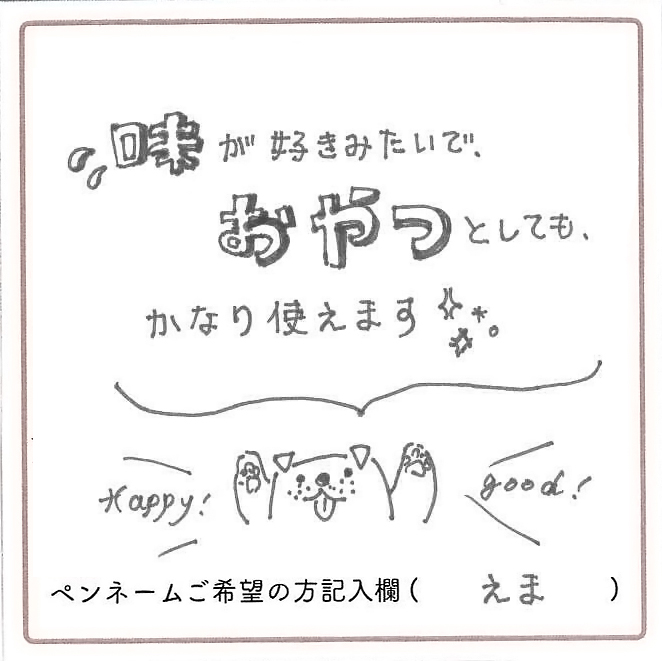 味が好きみたいで、
おやつとしても、
かなり使えます
Happy!
good!
ペンネームご希望の方記入欄(えま)